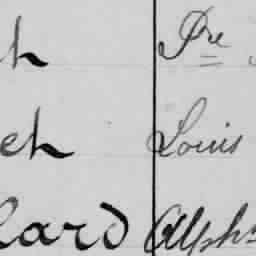 h Pre
ch Louis
lard Alph